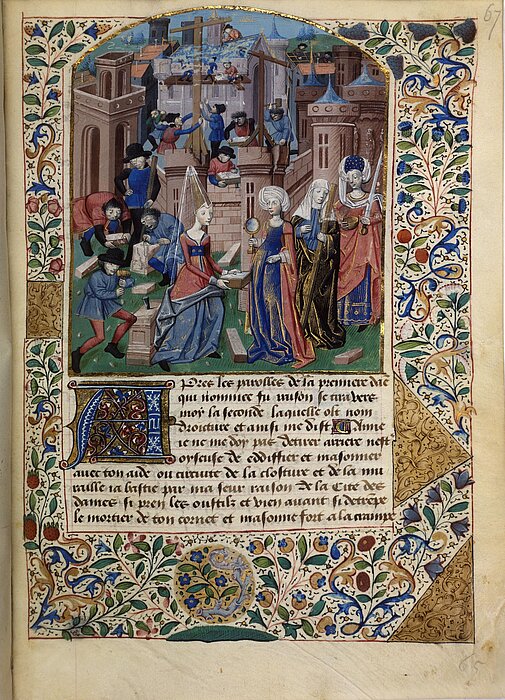 67
Apres les parolles de la premiere dae
qui nommee fu raison se tira vers
moy la seconde laquelle ost nom
Droiture et ainsi me dist Anne
ie ne me doy pas detirer arriere nest
oyseuse de eddiffier et masonner
auec ton aide ou circuite de la closture et de la mu
raille ia bastie par ma seur raison de la Cite des
dames si pren les oustilz et vien auant si destrepe
le mortier de ton cornet et masonne fort a la trampe
65